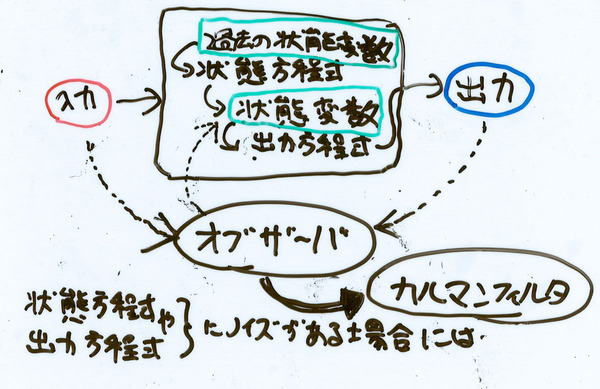 過去の状態変数
状態方程式
入力
状態変数
出力
出力方程式
オブザーバ
カルマンフィルタ
状態方程式や
出力方程式
にノイズがある場合には